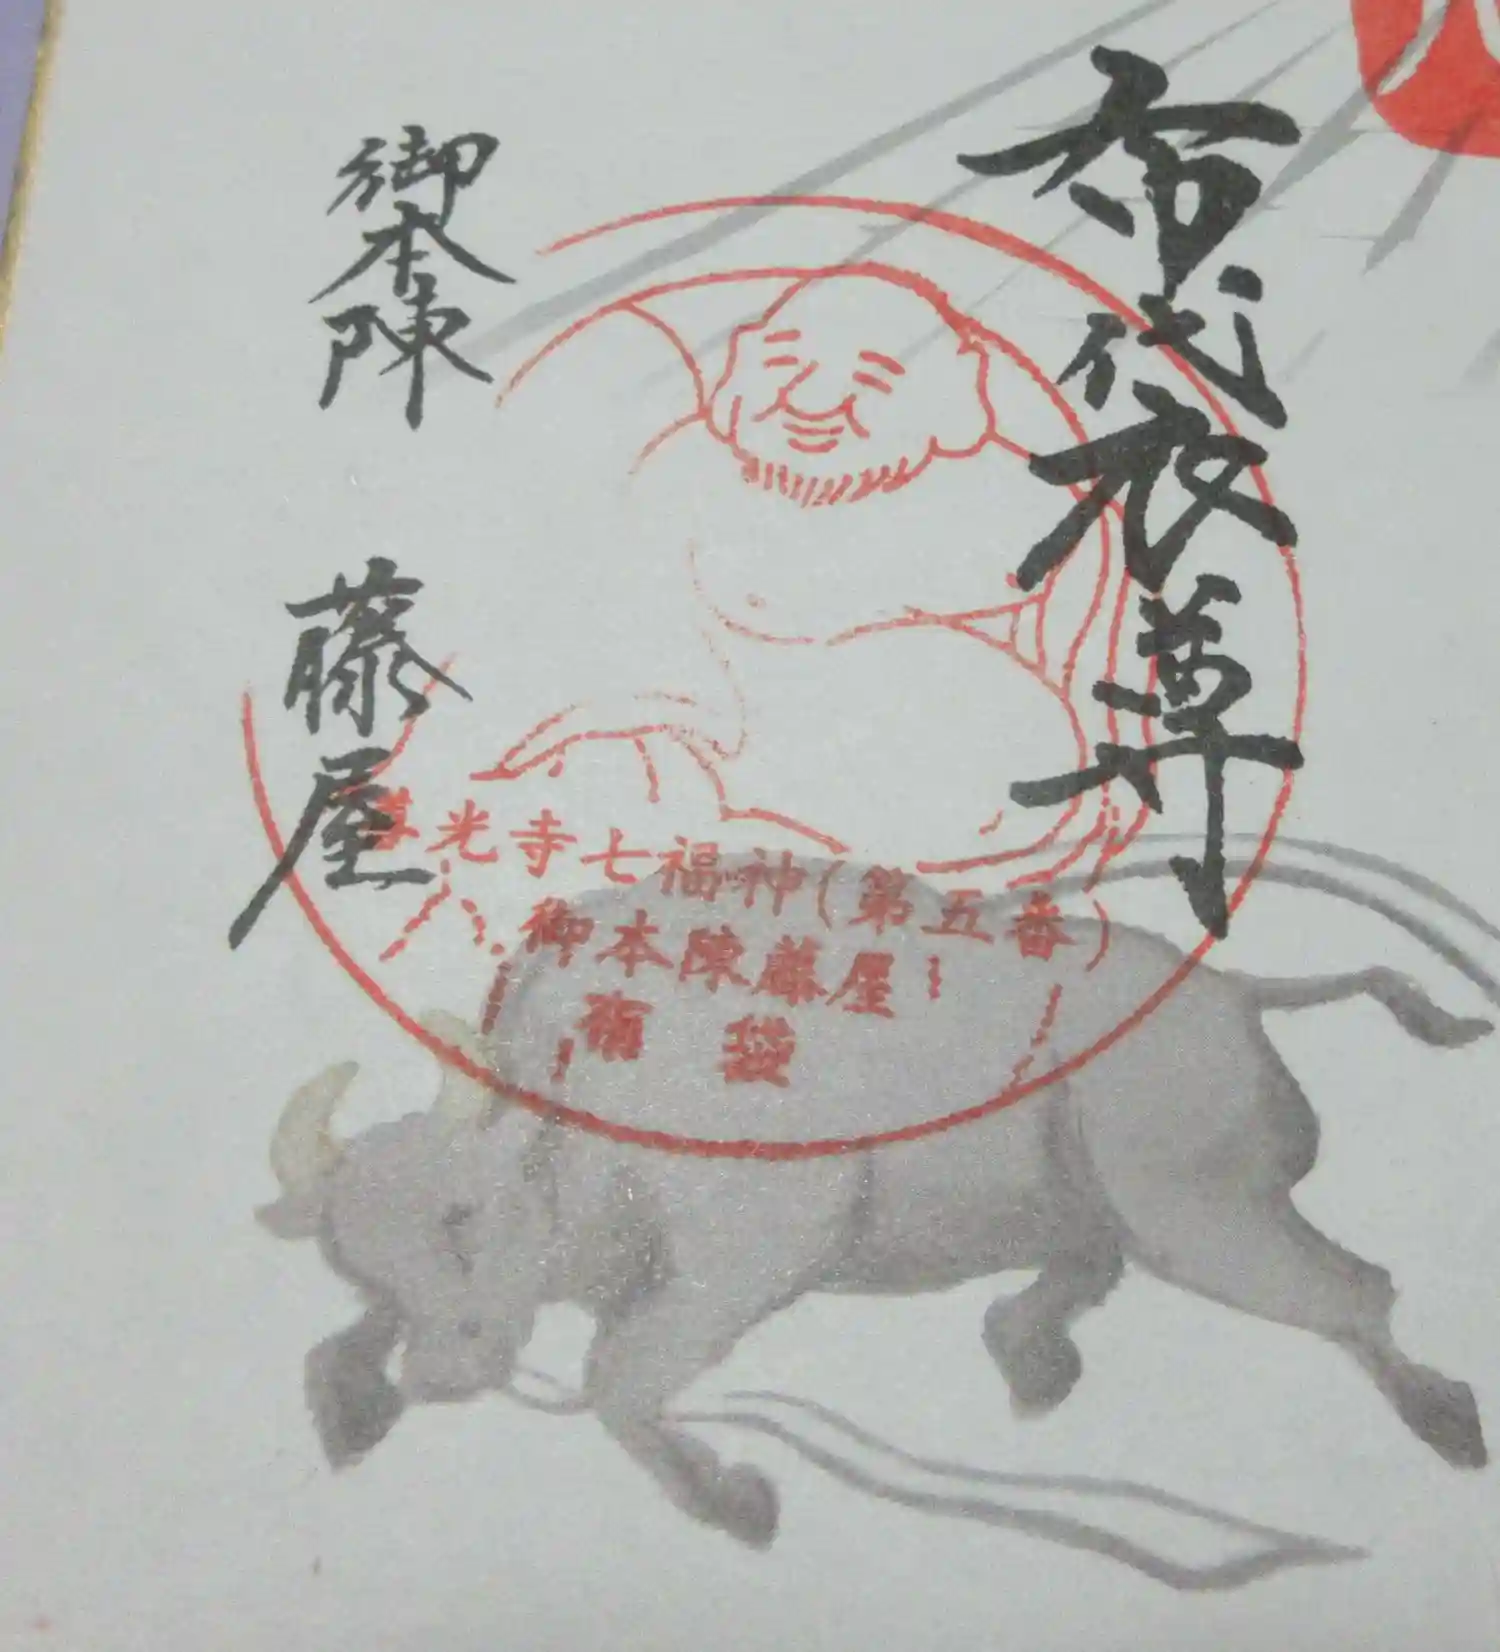 布代衣尊
御本陣 藤屋
善光寺七福神(第五番)
御本陳藤屋
布袋